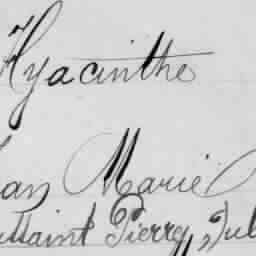 Hyacinthe
Jean Marie
Toussaint Pierre, Jul